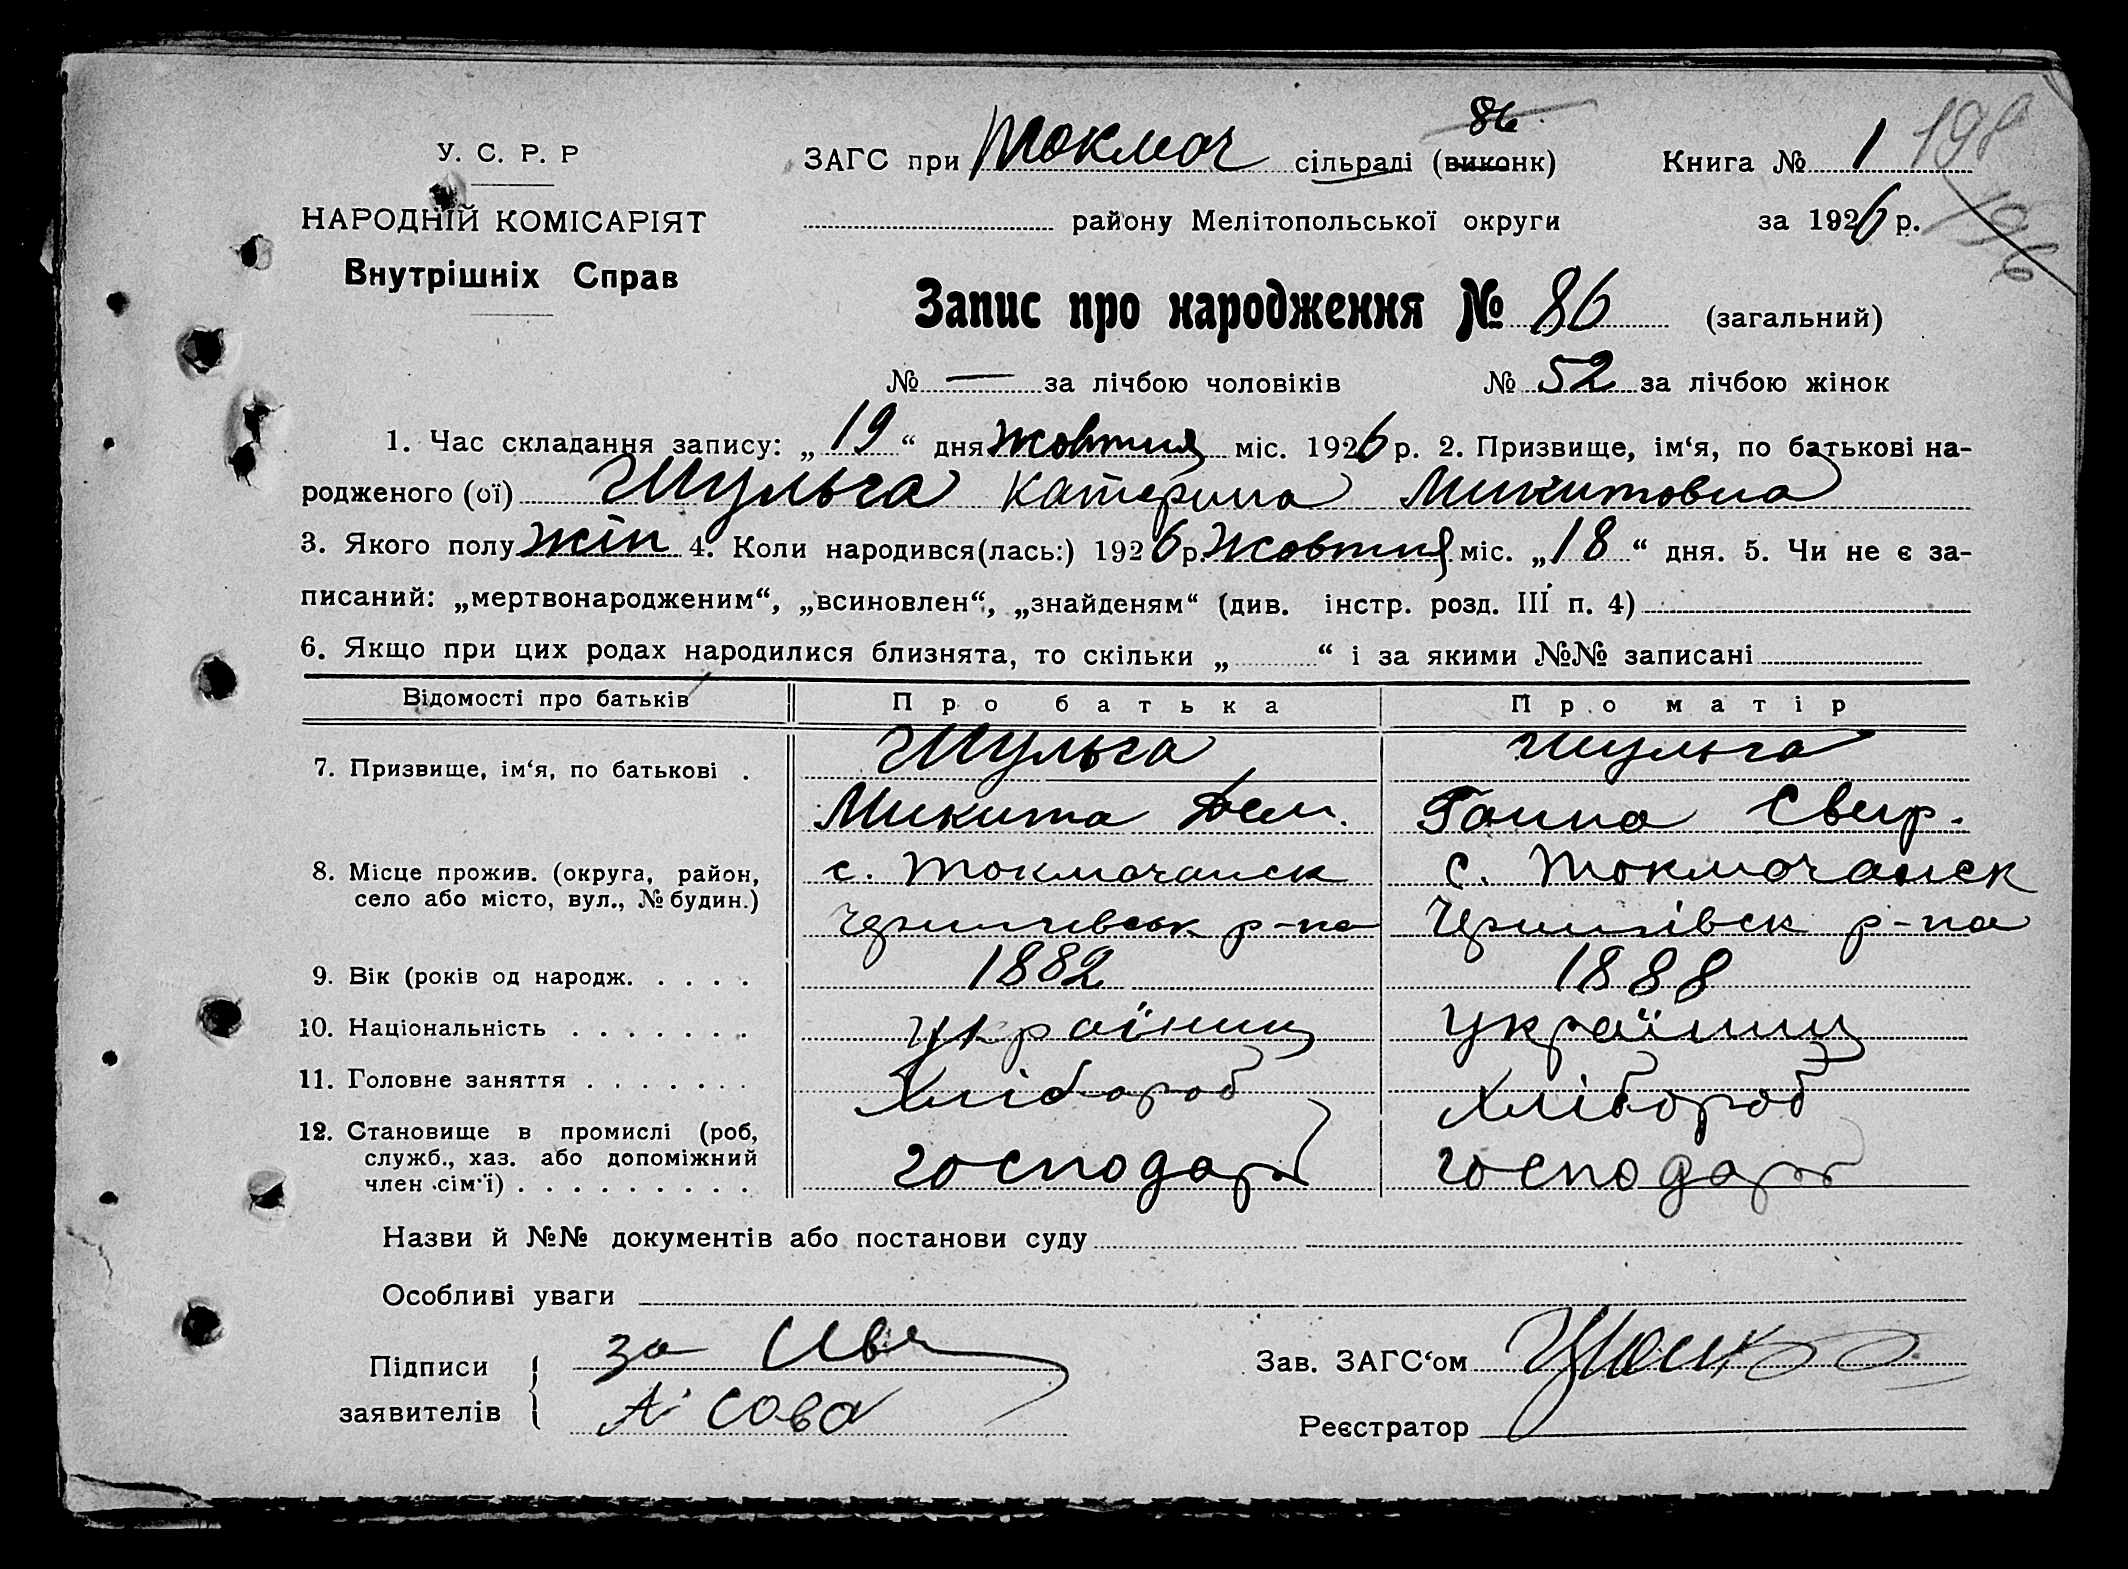 У. С. Р. Р
НАРОДНІЙ КОМІСАРІЯТ
Внутрішніх Справ
86
ЗАГС при Токмач сільраді (виконк)
Книга № 1 198
району Мелітопольської округи
за 1926 р. 196
Запис про народження № 86 (загальний)
№ — за лічбою чоловіків № 52 за лічбою жінок
1. Час складання запису: „ 19 “ дня жовтня міс. 1926 р. 2. Призвище, ім‘я, по батькові на-
родженого (ої) Шульга Катерина Микитовна
3. Якого полу жін 4. Коли народився(лась:) 1926 р. жовтня міс. „ 18 “ дня. 5. Чи не є за-
писаний: „мертвонародженим“, „всиновлен“, „знайденям“ (див. інстр. розд. III п. 4)
6. Якщо при цих родах народилися близнята, то скільки „ “ і за якими №№ записані
Відомості про батьків Про батька Про матір
7. Призвище, ім‘я, по батькові . Шульга Шульга
Микита Дем. Ганна Свир.
8. Місце прожив. (округа, район, с. Токмачанск с. Токмачанск
село або місто, вул., № будин.) Чернигвськ р-на Чернигівск р-на
9. Вік (років од народж. . . . . 1882 1888
10. Національність . . . . . . . україниц україниц
11. Головне заняття . . . . . . . Хлібороб хлібороб
12. Становище в промислі (роб,
служб., хаз. або допоміжний господар господар
член сім‘ї) . . . . . . . . .
Назви й №№ документів або постанови суду
Особливі уваги
Підписи за
заявителів Сова
Зав. ЗАГС‘ом
Реєстратор